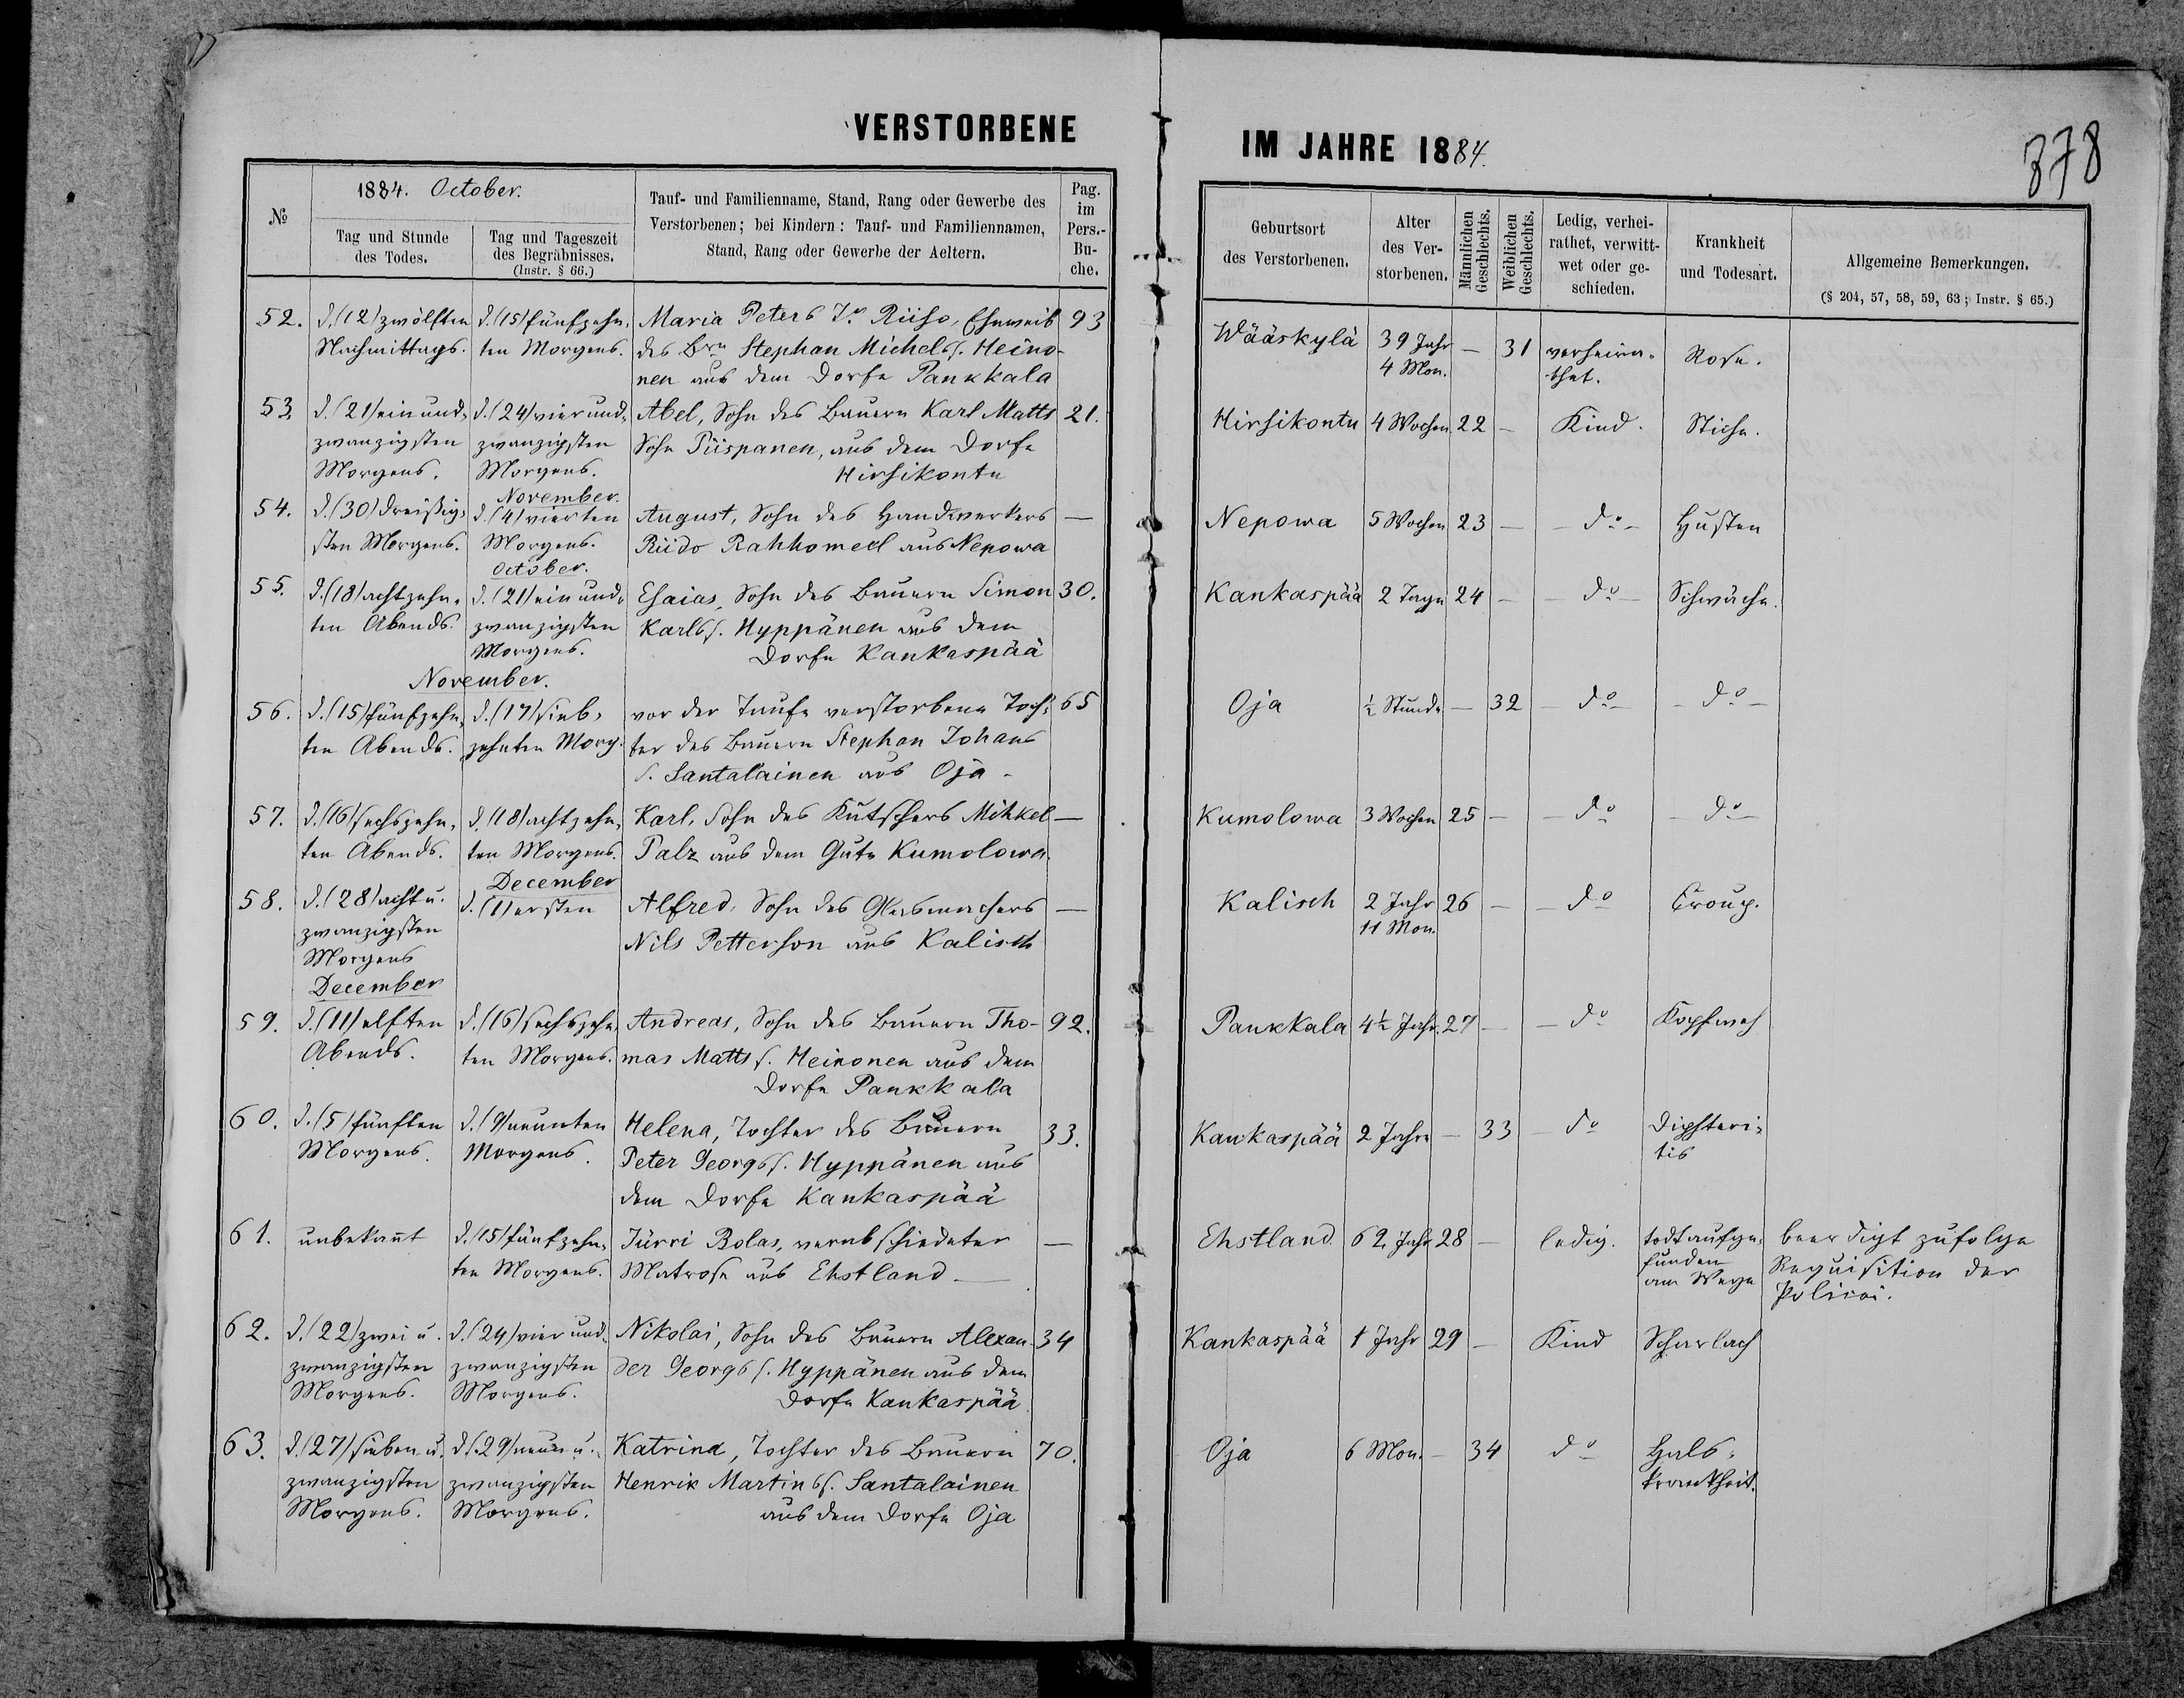 VERSTORBENE
IM JAHRE 1884.
378
№
1884. October.
Tag und Stunde
des Todes.
Tag und Tageszeit
des Begräbnisses.
(Instr. § 66.)
Tauf- und Familienname, Stand, Rang oder Gewerbe des
Verstorbenen; bei Kindern: Tauf- und Familiennamen,
Stand, Rang oder Gewerbe der Aeltern.
Pag.
im
Pers.-
Bu-
che.
Geburtsort
des Verstorbenen.
Alter
des Ver-
storbenen.
Männlichen
Geschlechts.
Weiblichen
Geschlechts.
Ledig, verhei-
rathet, verwitt-
wet oder ge-
schieden.
Krankheit
und Todesart.
Allgemeine Bemerkungen.
(§ 204, 57, 58, 59, 63; Instr. § 65.)
52. d. (12) zwölften d. (15) fünfzehn- Maria Peters Riiso, Eheweib 93 Wääskylä 39 Jahr — 31 verheira- Rose.
Nachmittags. ten Morgens. des Brn Stephan Michels s. Heino- 4 Mon. thet.
nen aus dem Dorfe Pankkala
53. d. (21) ein und- d. (24) vier und- Abel, Sohn des Bauern Karl Matts 21. Hirsikontu 4 Wochen 22 — Kind. Stiche.
zwanzigsten zwanzigsten Sohn Piispanen, aus dem Dorfe
Morgens. Morgens. Hirsikontu
November.
54. d. (30) dreißig- d. (4) vierten August, Sohn des Handwerkers — Nepowa 5 Wochen 23 — — do — Husten
sten Morgens. Morgens. Riido Rahhomed aus Nepowa
October.
55. d. (18) achtzehn- d. (21) ein und- Esaias, Sohn des Bauern Simon 30. Kankaspää 2 Tage 24 — — do — Schwäche.
ten Abends. zwanzigsten Karls s. Hyppänen aus dem
Morgens. Dorfe Kankaspää
November.
56. d. (15) fünfzehn- d. (17) sieb- vor der Taufe verstorbene Toch- 65 Oja ½ Stunde — 32 — do — — do —
ten Abends. zehnten Morg. ter des Bauern Stephan Johans
s. Santalainen aus Oja.
57. d. (16) sechszehn- d. (18) achtzehn- Karl, Sohn des Kutschers Mihkel — Kumolowa 3 Wochen 25 — — do — do —
ten Abends. ten Morgens. Palz aus dem Gute Kumolowa.
December
58. d. (28) acht u. d. (1) ersten Alfred, Sohn des Glasmachers — Kalisch 2 Jahr 26 — — do Croup.
zwanzigsten Nils Petterson aus Kalisch 11 Mon.
Morgens
December
59. d. (11) elften d. (16) sechszehn- Andreas, Sohn des Bauern Tho- 92. Pankkala 4½ Jahr. 27 — — do Kopfweh
Abends. ten Morgens. mas Matts s. Heinonen aus dem
Dorfe Pankkala
60. d. (5) fünften d. (9) neunten Helena, Tochter des Bauern 33. Kankaspää 2 Jahre — 33 do Diphteri-
Morgens. Morgens. Peter Georgs s. Hyppänen aus tis
dem Dorfe Kankaspää
61. unbekannt d. (15) fünfzehn- Jürri Bolas, verabschiedeter — Ehstland. 62 Jahr 28 — ledig. todt aufge- beerdigt zufolge
ten Morgens. Matrose aus Ehstland — funden Requisition der
am Wege Polizei.
62. d. (22) zwei u. d. (24) vier und- Nikolai, Sohn des Bauern Alexan- 34 Kankaspää 1 Jahr 29 — Kind Scharlach
zwanzigsten zwanzigsten der Georgs s. Hyppänen aus dem
Morgens. Morgens. Dorfe Kankaspää.
63. d. (27) sieben u. d. (29) neun u. Katrina, Tochter des Bauern 70. Oja 6 Mon. — 34 do Hals-
zwanzigsten zwanzigsten Henrik Martins s. Santalainen krankheit.
Morgens. Morgens. aus dem Dorfe Oja